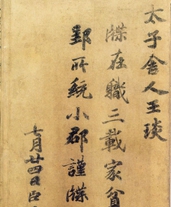 太子舍人王琰
牒在職三載家貧
郢所統小郡謹牒
七月廿四日臣